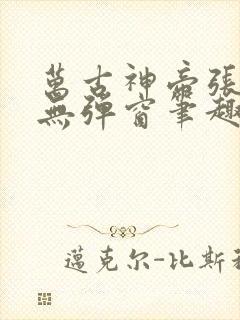 萬古神帝張
無彈窗筆趣
邁克尔-比斯